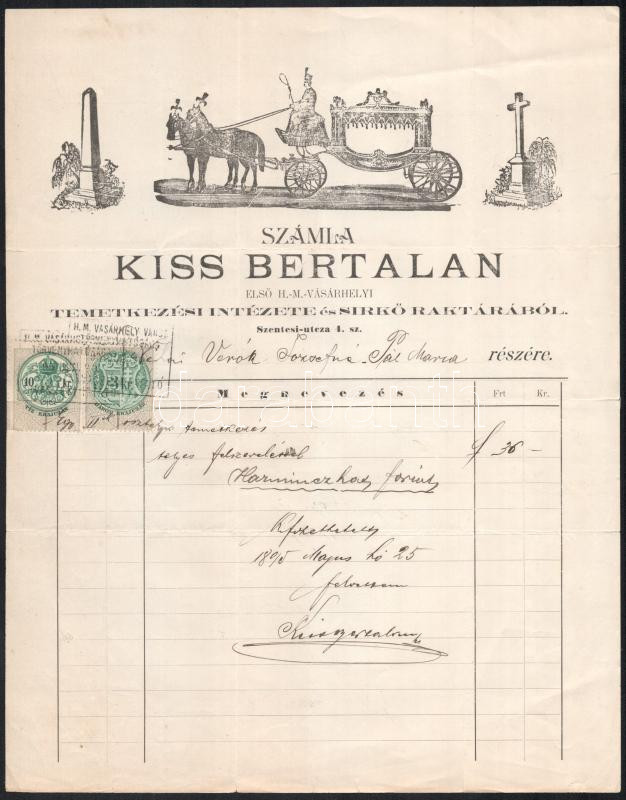 SZÁMLA
KISS BERTALAN
ELSŐ H.-M.-VÁSÁRHELYI
TEMETKEZÉSI INTÉZETE és SIRKŐ RAKTÁRÁBÓL.
Szentesi-utcza 4. sz.
H. M. VÁSÁRHELY VÁROS
Verók Józsefné Pál Mária részére.
10 kr.
TIZ KRAJCZÁR
Megnevezés Frt Kr.
Egy II od osztályu temetkezés
teljes felszereléssel f 36 –
Harminczhat forint
Kifizettetett
1895 Majus hó 25
felvettem
Kiss Bertalan
darabanth